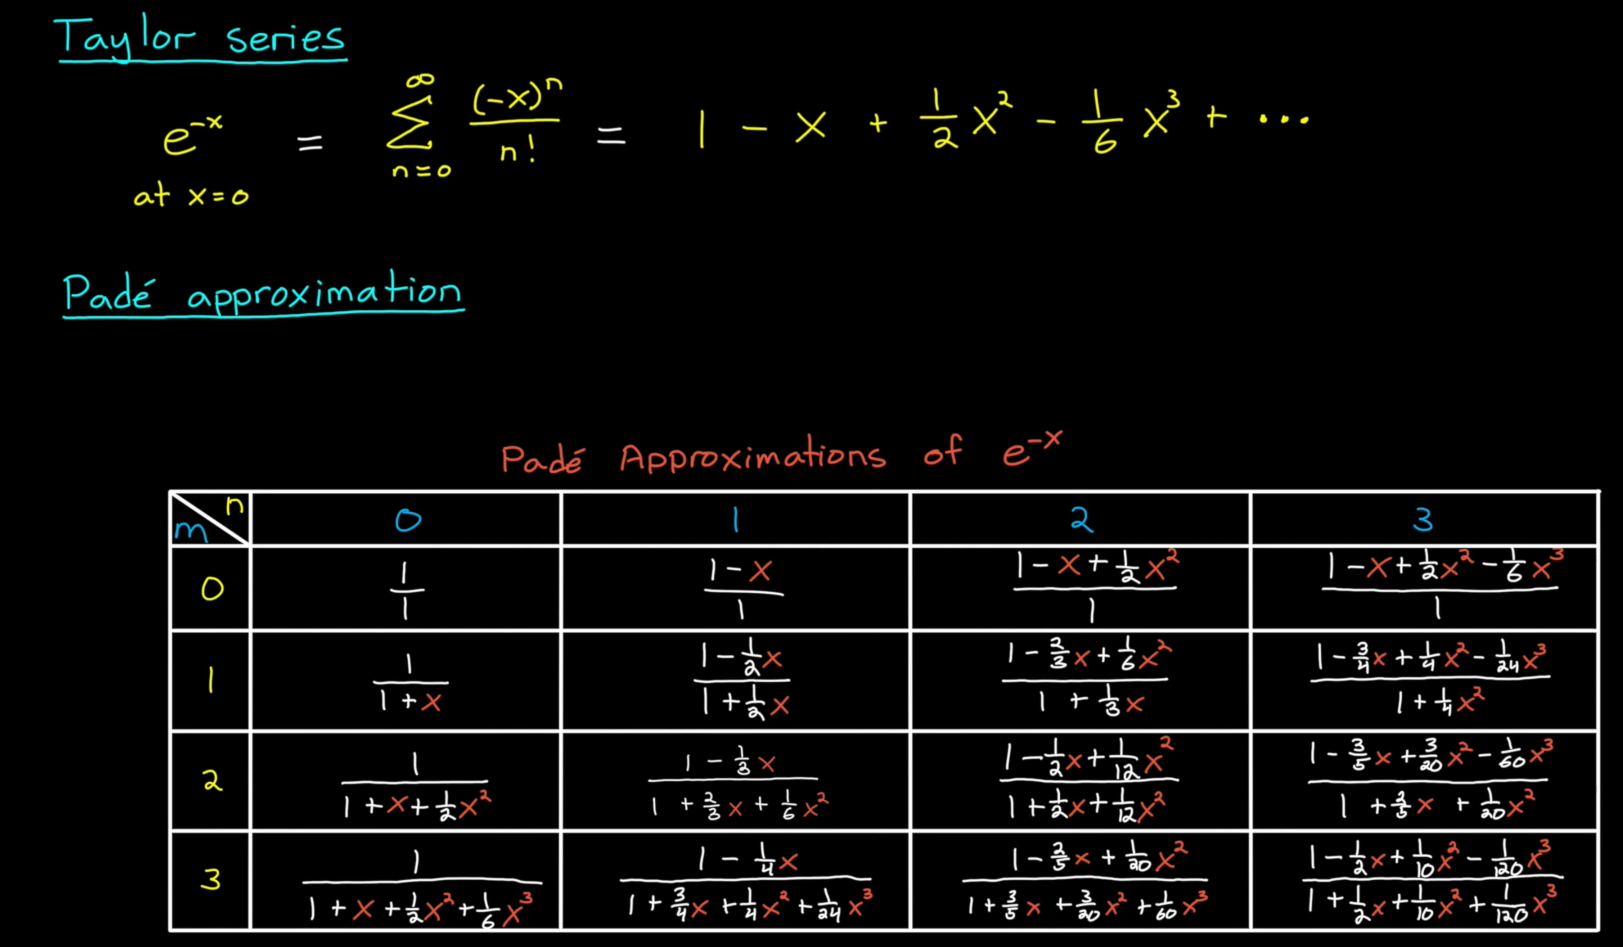 Taylor series
e^{-x} = \sum_{n=0}^{\infty} \frac{(-x)^n}{n!} = 1 - x + \frac{1}{2}x^2 - \frac{1}{6}x^3 + ...
at x=0
Padé approximation
Padé Approximations of e^{-x}
m \ n | 0 | 1 | 2 | 3
0 | \frac{1}{1} | \frac{1-x}{1} | \frac{1-x+\frac{1}{2}x^2}{1} | \frac{1-x+\frac{1}{2}x^2-\frac{1}{6}x^3}{1}
1 | \frac{1}{1+x} | \frac{1-\frac{1}{2}x}{1+\frac{1}{2}x} | \frac{1-\frac{2}{3}x+\frac{1}{6}x^2}{1+\frac{1}{3}x} | \frac{1-\frac{3}{4}x+\frac{1}{4}x^2-\frac{1}{24}x^3}{1+\frac{1}{4}x^2}
2 | \frac{1}{1+x+\frac{1}{2}x^2} | \frac{1-\frac{1}{3}x}{1+\frac{2}{3}x+\frac{1}{6}x^2} | \frac{1-\frac{1}{2}x+\frac{1}{12}x^2}{1+\frac{1}{2}x+\frac{1}{12}x^2} | \frac{1-\frac{3}{5}x+\frac{3}{20}x^2-\frac{1}{60}x^3}{1+\frac{2}{5}x+\frac{1}{20}x^2}
3 | \frac{1}{1+x+\frac{1}{2}x^2+\frac{1}{6}x^3} | \frac{1-\frac{1}{4}x}{1+\frac{3}{4}x+\frac{1}{4}x^2+\frac{1}{24}x^3} | \frac{1-\frac{2}{5}x+\frac{1}{20}x^2}{1+\frac{3}{5}x+\frac{3}{20}x^2+\frac{1}{60}x^3} | \frac{1-\frac{1}{2}x+\frac{1}{10}x^2-\frac{1}{120}x^3}{1+\frac{1}{2}x+\frac{1}{10}x^2+\frac{1}{120}x^3}